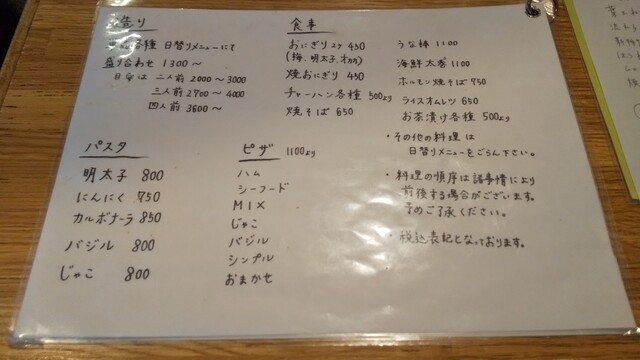 造り
各種 日替りメニューにて
盛り合わせ 1300〜
目安は 二人前 2000〜3000
三人前 2700〜4000
四人前 3600〜
食事
おにぎり2ケ 450
(梅、明太子、オカカ)
焼おにぎり 450
チャーハン各種 500より
焼そば 650
うな棒 1100
海鮮太巻 1100
ホルモン焼そば 750
ライスオムレツ 650
お茶漬け各種 500より
・その他の料理は
日替りメニューをごらん下さい。
・料理の順序は諸事情により
前後する場合がございます。
予めご了承ください。
・税込表記となっております。
パスタ
明太子 800
にんにく 750
カルボナーラ 850
バジル 800
じゃこ 800
ピザ 1100より
ハム
シーフード
MIX
じゃこ
バジル
シンプル
おまかせ